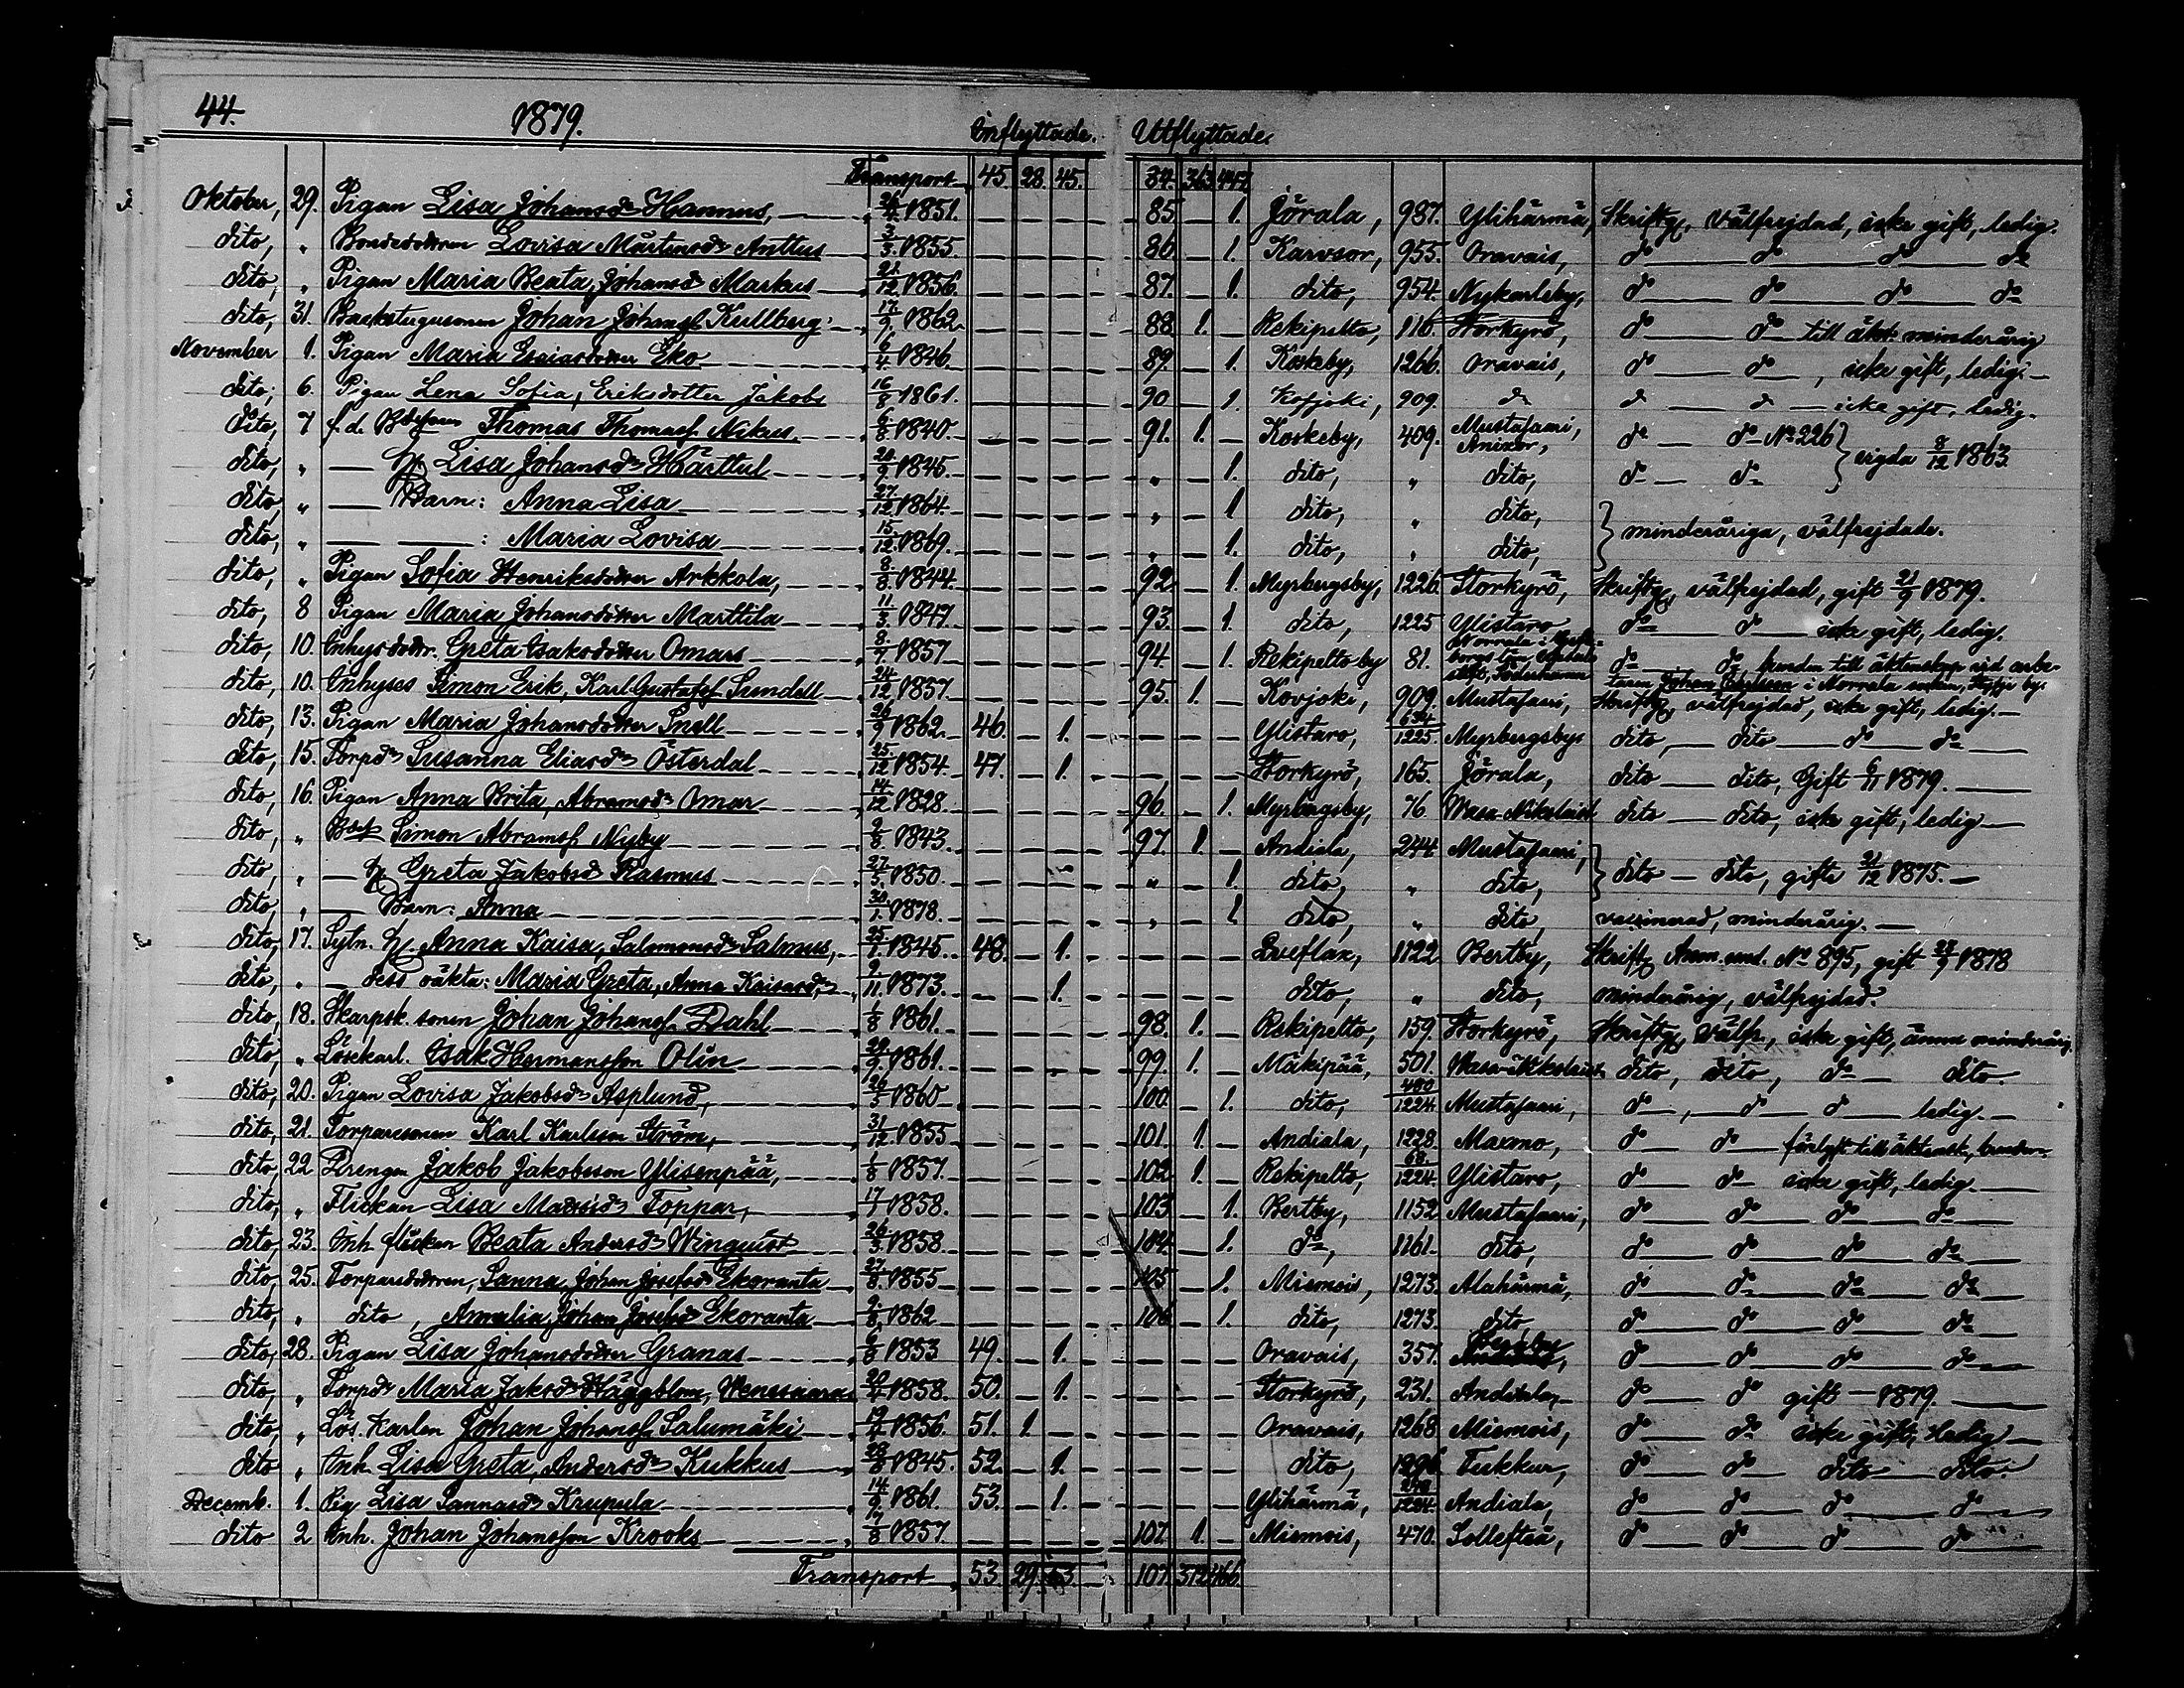 44. 1879. Inflyttade. Utflyttade.
Transport 45 28. 45. 84. 363 447
Oktober, 29. Pigan Lisa Johansdr Hannus, 26/4 1851. 85 1. Jörala, 987. Ylihärmä, Skriftg., välfrejdad, icke gift, ledig.
dito, " Bondedottren Lovisa Mårtensdr Anttus 3/3 1855. 86 1. Karvsor, 955. Oravais, do do do do
dito, " Pigan Maria Beata, Johansdr Markus 21/12 1856. 87. 1. dito, 954. Nykarleby, do do do do
dito, 31. Backstugusonen Johan Johansf. Kullberg 17/9 1862 88 1. Rekipelto, 116. Storkyrö, do do till äkt. minderårig
November 1. Pigan Maria Esaiasdotter Eko 6/4 1846. 89. 1. Koskeby, 1266. Oravais, do do, icke gift, ledig.
dito, 6. Pigan Lena Sofia, Eriksdotter Jakobs 16/8 1861. 90 1. Kofjoki, 909. do do do icke gift, ledig.
dito, 7 f.d. Thomas Thomasf. Nikus 6/8 1840. 91. 1. Koskeby, 409. Mustasaari, Anixor, do do No 226 } vigda 8/12 1863
dito, " H. Lisa Johansdr Härttul 20/9 1845. " 1. dito, " dito, do do
dito, " Barn: Anna Lisa 27/12 1864. " 1 dito, " dito, } minderåriga, välfrejdade.
dito, " : Maria Lovisa 15/12 1869. " 1. dito, " dito,
dito, " Pigan Sofia Henriksdotter Arkkola, 8/8 1844. 92 1. Myrbergsby, 1226. Storkyrö, Skriftg., välfrejdad, gift 21/9 1879.
dito, 8 Pigan Maria Johansdotter Marttila 11/3 1847. 93. 1. dito, 1225 Ylistaro do do icke gift, ledig.
dito, 10. Inhysdottr. Greta Isaksdotter Omars 8/7 1857 94. 1. Rekipelto by 81. Norrala i Söderhamn do do bunden till äktenskap vid arbetaren Johan i Norrala socken,
dito, 10. Inhyses Simon Erik, Karl Gustafsf. Sundell 24/12 1857. 95. 1. Kovjoki, 909. Mustasaari, Skriftg, välfrejdad, icke gift, ledig.
dito, 13. Pigan Maria Johansdotter Snell 26/9 1862. 46. 1. Ylistaro, 634/1225. Myrbergsby dito, dito do do
dito, 15. Torpdr Susanna Eliasdr Österdal 25/12 1854. 47. 1. Storkyrö, 165. Jörala, dito dito, Gift 6/11 1879.
dito, 16. Pigan Anna Brita, Abramsdr Omar 14/12 1828. 96. 1. Myrbergsby, 76. Wasa-Nikolaist dito dito, icke gift, ledig
dito, " Simon Abramsf. Nyby 2/8 1843. 97. 1. Andiala, 244. Mustasaari, } dito dito, gifte 21/12 1875.
dito, " H. Greta Jakobsdr Rasmus 27/5 1850. " 1. dito, " dito,
dito, " Barn: Anna 30/1 1878. " 1. dito, " dito, vaccinerad, minderårig.
dito, 17. Sytn. H. Anna Kaisa, Salomonsdr Salmus, 25/1 1845. 48. 1. Qveflax, 1122 Bertby, Skriftg Anm. und. No 895, gift 27/9 1878
dito, " dess oäkta: Maria Greta, Anna Kaisasdr, 9/11 1873. 1. dito, " dito, minderårig, välfrejdad.
dito, 18. Skarpsk. sonen Johan Johansf. Dahl 1/8 1861. 98. 1. Rekipelto, 159. Storkyrö, Skriftg, Välfr., icke gift, ännu minderårig.
dito, " Lösekarl. Isak Hermansson Olin 29/9 1861. 99. 1. Mäkipää, 501. Wasa-Nikolaist dito, dito, do dito.
dito, 20. Pigan Lovisa Jakobsdr Asplund, 26/5 1860 100. 1. dito, 480/1224. Mustasaari, do, do do ledig.
dito, 21. Torparesonen Karl Karlsson Ström, 31/12 1855 101. 1. Andiala, 1228. Maxmo, do do förlyst till äktensk., bunden.
dito, 22 Drengen Jakob Jakobsson Ylisenpää, 1/8 1857. 102. 1. Rekipelto, 68./1224. Ylistaro, do do icke gift, ledig.
dito, " Flickan Lisa Mattsdr Toppar, 17/7 1858. 103. 1. Bertby, 1152 Mustasaari, do do do do
dito, 23. Inh. flickan Beata Andersdr Winquist 26/3 1858. 104. 1. do, 1161. dito, do do do do
dito, 25. Torparedottren, Sanna, Johan Josefsdr Ekoranta 27/8 1855 105. 1. Mismois, 1273. Alahärmä, do do do do
dito, " dito, Amalia, Johan Josefsdr Ekoranta 9/8 1862 106. 1. dito, 1273. dito do do do do
dito, 28. Pigan Lisa Johansdotter Granas 6/8 1853 49. 1. Oravais, 357. do do do do
dito, " Torpdr Maria Jaksdr Häggblom, Wenesaara 20/4 1858. 50. 1. Storkyrö, 231. Andiala, do do gift 1879.
dito, " Lös. Karlen Johan Johansf. Salumäki 19/4 1856. 51. 1. Oravais, 1268 Mismois, do do icke gift, ledig
dito " Inh. Lisa Greta, Andersdr Kukkus 28/3 1845. 52. 1. dito, 1296. Tukkur, do do dito dito.
Decemb. 1. Pig Lisa Sannasdr Krupula 14/9 1861. 53. 1. Ylihärmä, 248/1224. Andiala, do do do do
dito 2 Inh. Johan Johansson Krooks 17/8 1857. 107. 1. Mismois, 470. Solleftså, do do do do
Transport 53. 29. 53. 107. 372 466.